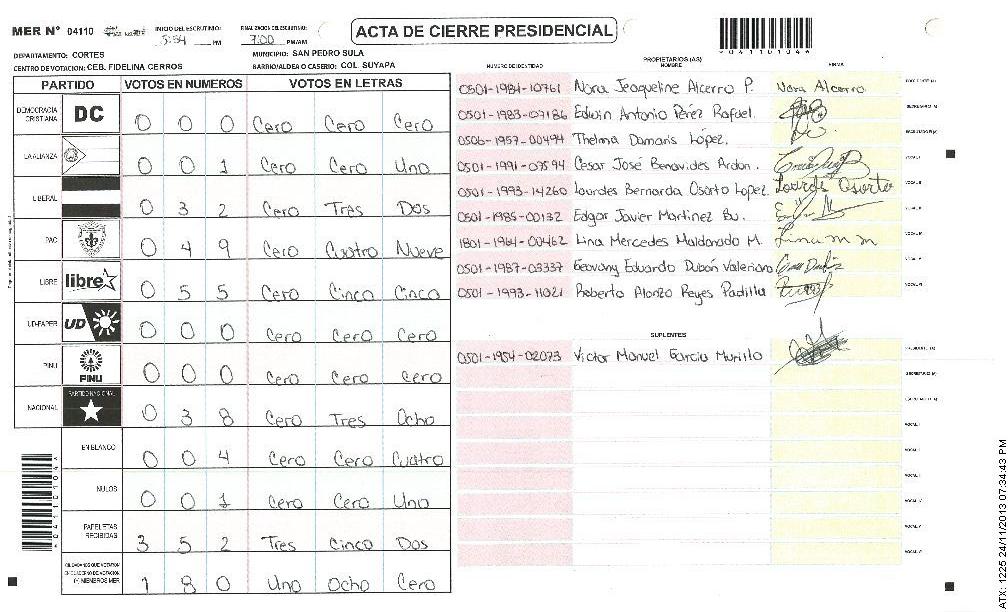 MER Nº 04110
INICIO DEL ESCRUTINIO: 5:54 PM
FINALIZACION DEL ESCRUTINIO: 7:00 PM/AM
ACTA DE CIERRE PRESIDENCIAL
*04110104*
DEPARTAMENTO: CORTES
MUNICIPIO: SAN PEDRO SULA
CENTRO DE VOTACION: CEB. FIDELINA CERROS
BARRIO/ALDEA O CASERIO: COL. SUYAPA
PARTIDO VOTOS EN NUMEROS VOTOS EN LETRAS
DEMOCRACIA CRISTIANA DC 0 0 0 Cero Cero Cero
LA ALIANZA 0 0 1 Cero Cero Uno
LIBERAL 0 3 2 Cero Tres Dos
PAC 0 4 9 Cero Cuatro Nueve
LIBRE libre 0 5 5 Cero Cinco Cinco
UD-FAPER UD 0 0 0 Cero Cero Cero
PINU PINU 0 0 0 Cero Cero Cero
NACIONAL PARTIDO NACIONAL 0 3 8 Cero Tres Ocho
EN BLANCO 0 0 4 Cero Cero Cuatro
NULOS 0 0 1 Cero Cero Uno
PAPELETAS RECIBIDAS 3 5 2 Tres Cinco Dos
CIUDADANOS QUE VOTARON EN CUADERNO DE VOTACION (+) MIEMBROS MER 1 8 0 Uno Ocho Cero
PROPIETARIOS (AS)
NUMERO DE IDENTIDAD NOMBRE FIRMA
0501-1984-10761 Nora Jeaqueline Alcerro P. Nora Alcerro
0501-1983-07186 Edwin Antonio Pérez Rafael.
0506-1957-00494 Thelma Damaris López.
0501-1991-07594 César José Benavides Ardon.
0501-1993-14260 Lourdes Bernarda Osorto Lopez. Lourdes Osorto
0501-1985-00132 Edgar Javier Martinez Bu.
1801-1964-00462 Lina Mercedes Maldonado M. Lina m m
0501-1987-03337 Geovany Eduardo Dubón Valeriano
0501-1993-11021 Roberto Alonzo Reyes Padilla
SUPLENTES
0501-1954-02073 Victor Manuel Garcia Murillo
PRESIDENTE (A)
SECRETARIO (A)
ESCRUTADOR (A)
VOCAL I
VOCAL II
VOCAL III
VOCAL IV
VOCAL V
VOCAL VI
ATX: 1225 24/11/2013 07:34:43 PM